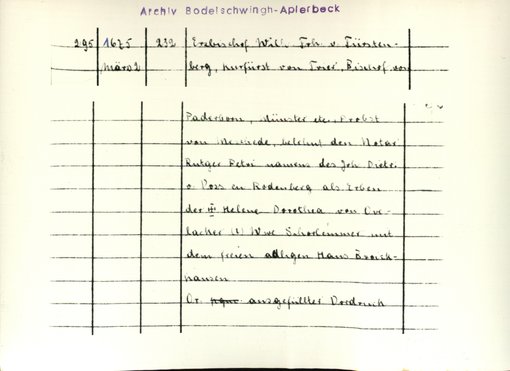 Archiv Bodelschwingh-Aplerbeck
295 1675 232 Erzbischof Will. Joh. v. Fürsten-
März 2 berg, Kurfürst von Trier, Bischof von
Paderborn, Münster etc. Probst
von Meschede, belehnt den Notar
Rutger Petri namens des Joh. Dietr.
v. Voss zu Rodenberg als Erben
der Helene Dorothea von Ove-
lacker (†) Wwe Schorlemmer mit
dem freien adligen Haus Broick-
hausen
Or. ausgefüllter Vordruck